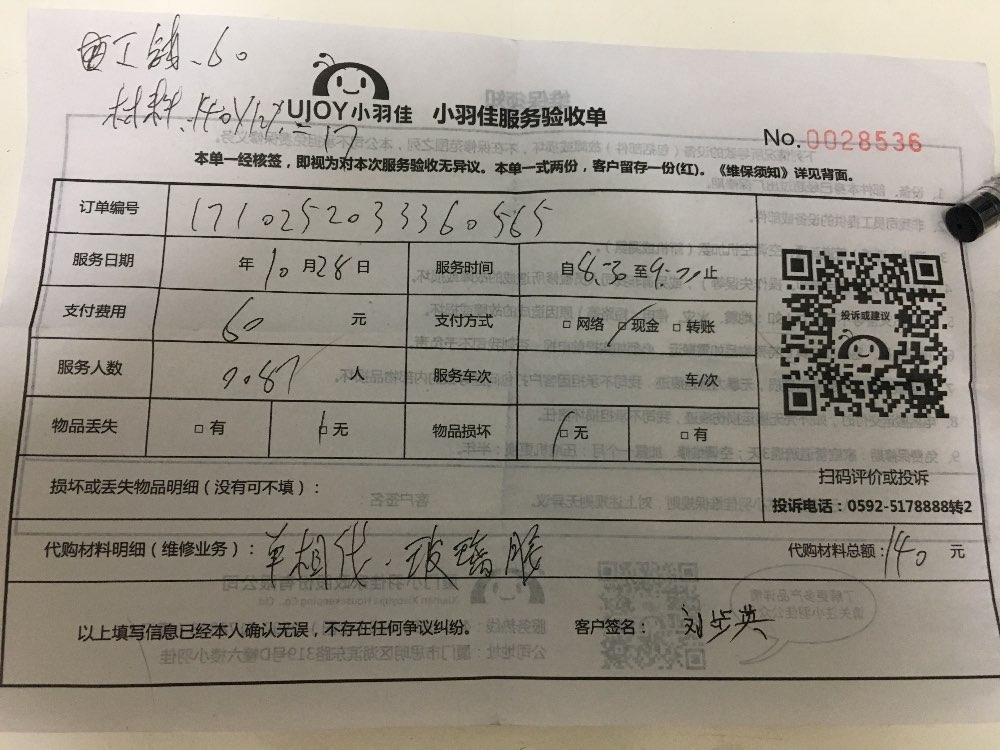 工钱.60
材料.140
UJOY小羽佳 小羽佳服务验收单
No.0028536
本单一经核签，即视为对本次服务验收无异议。本单一式两份，客户留存一份(红)。《维保须知》详见背面。
订单编号 171025203336 0565
服务日期 年10月28日 服务时间 自8:30至9:20止
支付费用 60 元 支付方式 □网络 □现金 □转账
服务人数 人 服务车次 车/次
物品丢失 □有 □无 物品损坏 □无 □有
投诉或建议
扫码评价或投诉
损坏或丢失物品明细（没有可不填）：
投诉电话：0592-5178888转2
代购材料明细（维修业务）： 玻璃胶 代购材料总额：140 元
以上填写信息已经本人确认无误，不存在任何争议纠纷。 客户签名： 刘步英